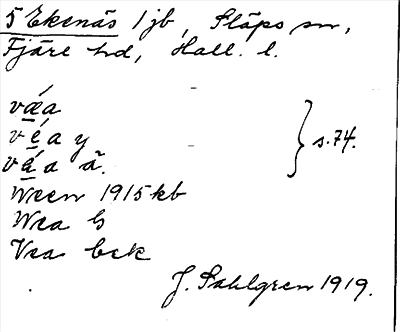 5 Ekenäs 1 jb, Släps sn,
Fjäre hd, Hall. l.
vǽa
vé̱a y } s. 74.
vä́a ä.
Ween 1915 kb
Wea G
Vea bek
J. Sahlgren 1919.